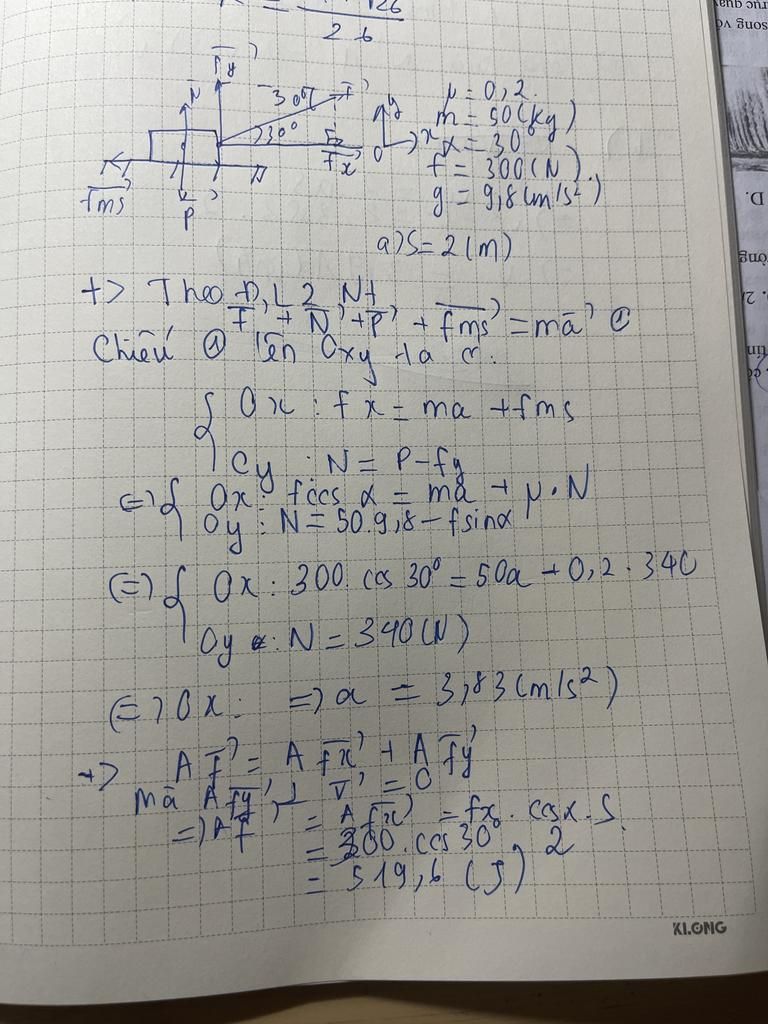 26
2 6
Fy
N
30° F
)30°
Fx
fms
P
y
x
O
μ = 0,2.
m = 50(kg)
α = 30
f = 300(N).
g = 9,8(m/s²)
a) S = 2(m)
+> Theo Đ,L 2 Nt
F + N + P + fms = ma ①
Chiếu ① lên Oxy ta c
Ox : fx = ma + fms
Oy : N = P - fy
(=) Ox : fcos α = ma + μ.N
Oy : N = 50.9,8 - fsinα
(=) Ox : 300. cos 30° = 50a + 0,2 . 340
Oy : N = 340(N)
(=) Ox : => a = 3,83(m/s²)
+> A F = A fx + A fy
mà A fy ⊥ v = 0
=> A F = A fx = fx. cosα. S.
= 300. cos 30 . 2
= 519,6 (J)
KLONG
D.
song